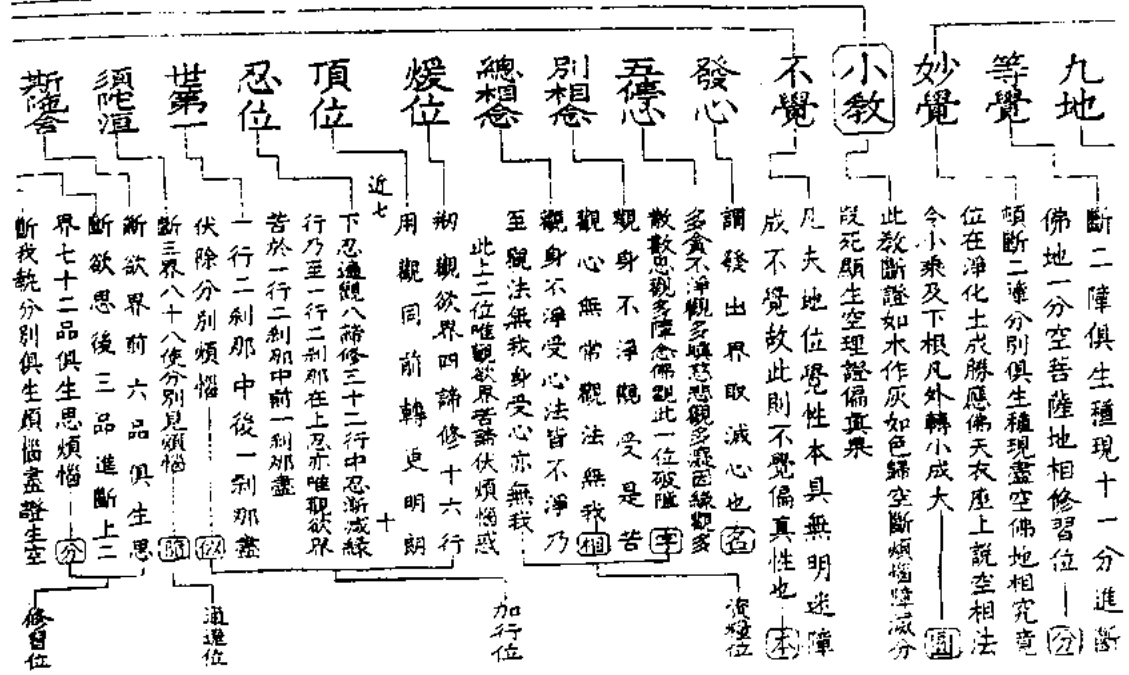 九地
斷二障俱生種現十一分進斷
等覺
佛地一分空菩薩地相修習位
分
妙覺
頓斷二障分別俱生種現盡空佛地相究竟
位在淨化土成勝應佛天衣座上說空相法
今小乘及下根凡外轉小成大
圓
小教
此教斷證如木作灰如色歸空斷煩惱障滅分
段死顯生空理證偏真果
不覺
凡夫地位覺性本具無明迷障
成不覺故此則不覺偏真性也
本
發心
謂發出界取滅心也
名
五停心
多貪不淨觀多瞋慈悲觀多癡因緣觀多
散數息觀多障念佛觀此一位破障
別相念
觀身不淨觀受是苦
觀心無常觀法無我
相
總相念
觀身不淨受心法皆不淨乃
至觀法無我身受心亦無我
此上二位唯觀欲界苦諦伏煩惱惑
資糧位
煖位
觀欲界四諦修十六行
頂位
用觀同前轉更明朗
近七
十
忍位
下忍遍觀八諦修三十二行中忍漸減緣
行乃至一行二剎那在上忍亦唯觀欲界
苦於一行二剎那中前一剎那盡
世第一
一行二剎那中後一剎那盡
伏除分別煩惱
加行位
須陀洹
斷三界八十八使分別見煩惱
通達位
斯陀含
斷欲界前六品俱生思
斷欲思後三品進斷上二
界七十二品俱生思煩惱
分
斷我執分別俱生煩惱盡證生空
修習位